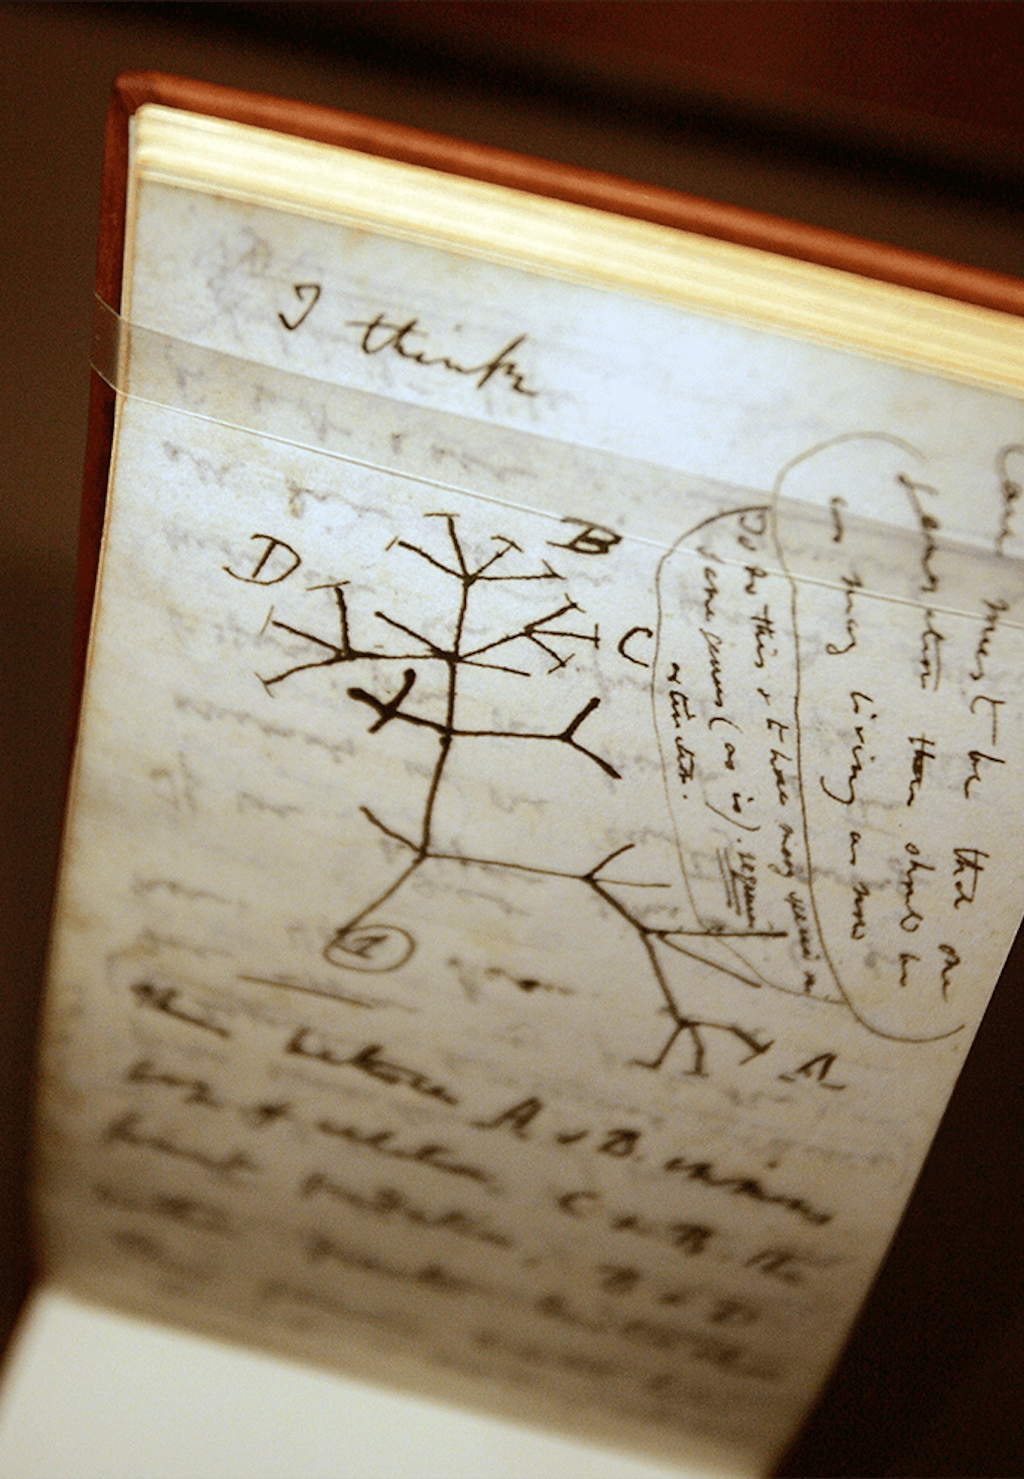 I think
D
B
C
Case must be that one
generation then should be
as many living as now
To do this & to have many species in
same genus (as is). requires
extinction.
1
A
Thus between A & B. immense
gap of relation. C & B. the
finest gradation, B & D
rather greater distinction